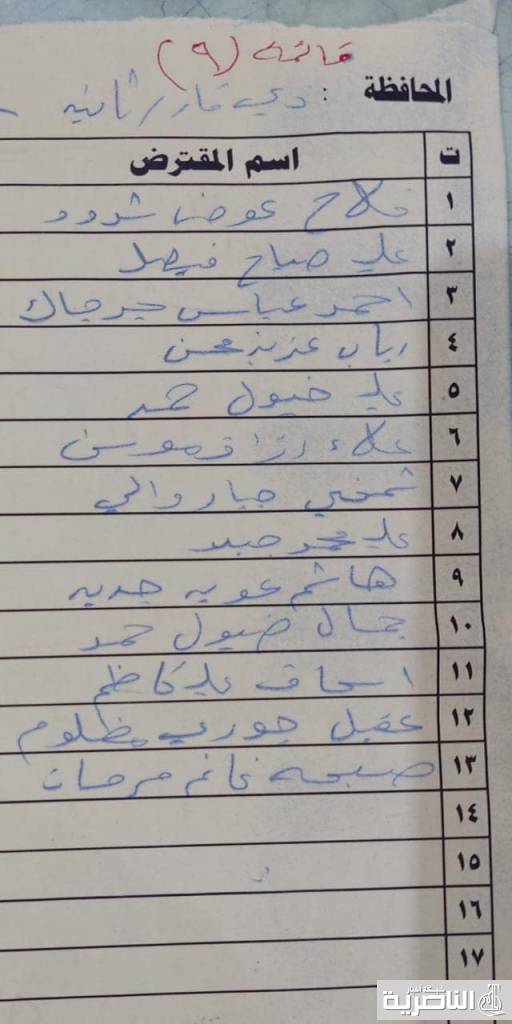 قائمة (٩)
المحافظة : ذي قار / ثانيه
ت اسم المقترض
١ فلاح عوض شدود
٢ علي صباح فيصل
٣ احمد عباس جرجاك
٤ رباب عزيز محسن
٥ علي خيول حمد
٦ علاء
٧ شمخي جبار والي
٨ علي محمد
٩ هاشم
١٠ جمال خيول حمد
١١ اسحاق علي كاظم
١٢ عقيل جوري مظلوم
١٣ صبيحه غانم فرحان
١٤
١٥
١٦
١٧
شبكة أخبار
الناصرية